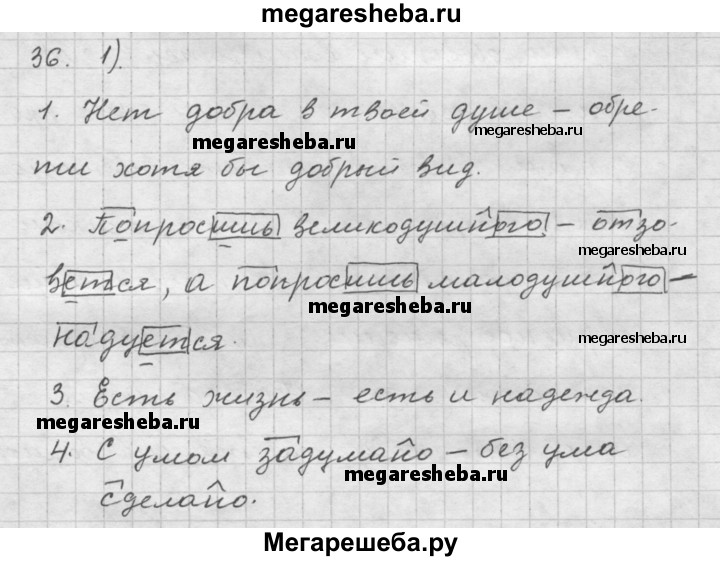 megaresheba.ru
36. 1).
megaresheba.ru
1. Нет добра в твоей душе – обре-
megaresheba.ru megaresheba.ru
ти хотя бы добрый вид.
2. Попросишь великодушного – отзо-
megaresheba.ru
вется, а попросишь малодушного –
megaresheba.ru
надуется.
megaresheba.ru
3. Есть жизнь – есть и надежда.
megaresheba.ru
4. С умом задумано – без ума
megaresheba.ru
сделано.
Мегарешеба.ру